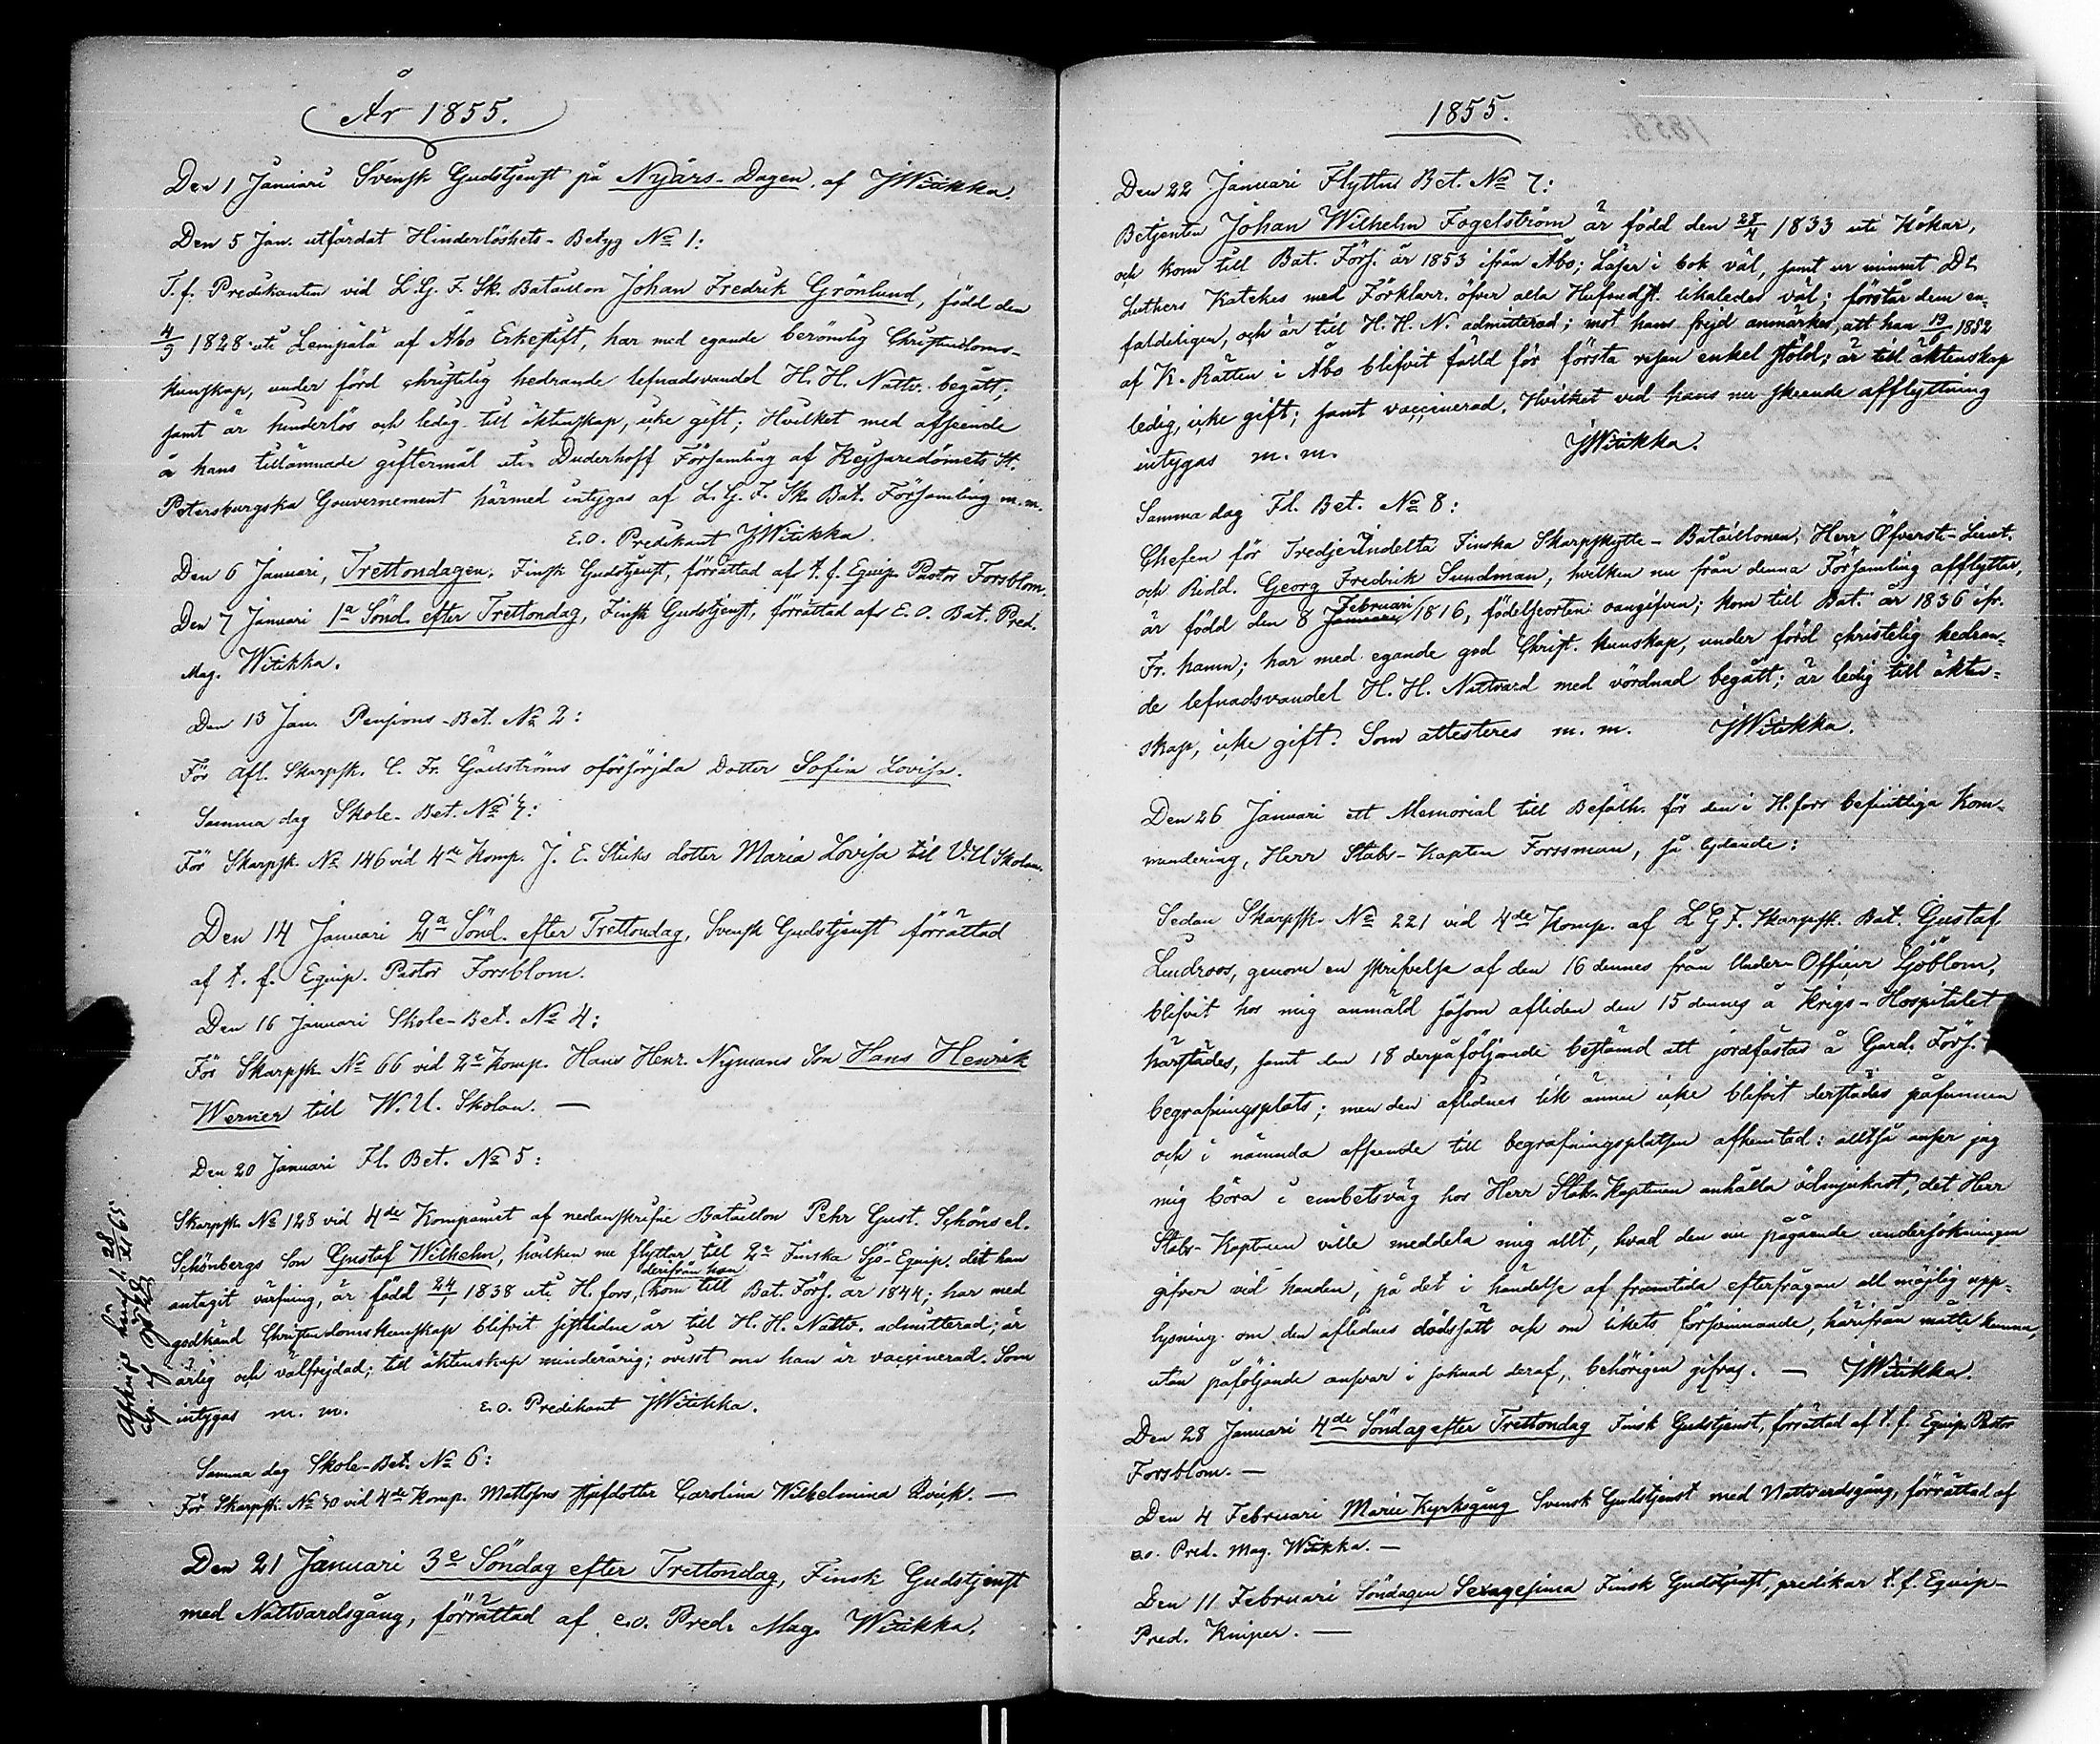 År 1855.
Den 1 Januari Svensk Gudstjenst på Nyårs-Dagen. af JWitikka.
Den 5 Jan. utfärdat Hinderlöshets-Betyg No 1:
T. f. Predikanten vid L. G. F. Sk. Bataillon Johan Fredrik Grönlund, född den
4/9 1828 uti Lempälä af Åbo Erkestift, har med egande berömlig Christendoms-
kunskap, under förd christelig hedrande lefnadsvandel H. H. Nattv. begått;
samt är hinderlös och ledig till äktenskap, icke gift; Hvilket med afseende
å hans tillämnade giftermål uti Duderhoff Församling af Kejsaredömets St.
Petersburgska Gouvernement härmed intygas af L. G. F. Sk. Bat. Församling m. m.
E. O. Predikant JWitikka.
Den 6 Januari, Trettondagen. Finsk Gudstjenst, förrättad af t. f. Equip. Pastor Forsblom.
Den 7 Januari 1a Sönd. efter Trettondag, Finsk Gudstjenst, förrättad af E. O. Bat. Pred.
Mag. Witikka.
Den 13 Jan. Pensions-Bet. No 2:
För Afl. Skarpsk. C. Fr. Gällströms oförsörjda Dotter Sofia Lovisa.
Samma dag Skole-Bet. No 3:
För Skarpsk. No 146 vid 4de Komp. J. E. Sticks dotter Maria Lovisa til V. U Skolan.
Den 14 Januari 2a Sönd. efter Trettondag, Svensk Gudstjenst förrättad
af t. f. Equip. Pastor Forsblom.
Den 16 Januari Skole-Bet. No 4:
För Skarpsk. No 66 vid 2a Komp. Hans Henr. Nymans Son Hans Henrik
Werner till W. U. Skolan. —
Den 20 Januari Fl. Bet. No 5:
Skarpsk. No 128 vid 4de Kompaniet af nedanskrifne Bataillon Pehr Gust. Schöns el.
Schönbergs Son Gustaf Wilhelm, hvilken nu flyttar till 2a Finska Sjö-Equip. dit han
derifrån han
antagit värfning, är född 24/1 1838 uti H. fors, kom till Bat. Förs. år 1844; har med
godkänd Christendomskunskap blifvit sistlidne år till H. H. Nattv. admitterad; är
ärlig och välfrejdad; till äktenskap minderårig; ovisst om han är vaccinerad. Som
intygas m. m. E. O. Predikant JWitikka.
Samma dag Skole-Bet. No 6:
För Skarpsk. No 40 vid 4de Komp. Mattsons styfdotter Carolina Wilhelmina Qvick. —
Den 21 Januari 3e Söndag efter Trettondag, Finsk Gudstjenst
med Nattvardsgång, förrättad af e. o. Pred. Mag. Witikka.
1855.
Den 22 Januari Flyttn Bet. No 7:
Betjenten Johan Wilhelm Fogelström är född den 28/4 1833 uti Kökar,
och kom till Bat. Förs. år 1853 ifrån Åbo; Läser i bok väl, samt ur minnet Dr
Luthers Katekes med Förklarr. öfver alla Hufvudst. likaledes väl; förstår dem en-
faldeligen, och är till H. H. N. admitterad; mot hans frejd anmärkes, att han 19/ 1852
af K. Rätten i Åbo blifvit fälld för första resan enkel stöld; är till äktenskap
ledig, icke gift; samt vaccinerad. Hvilket vid hans nu skeende afflyttning
intygas m. m. JWitikka.
Samma dag Fl. Bet. No 8:
Chefen för Tredje Indelta Finska Skarpskytte-Bataillonen, Herr Öfverste-Lieut.
och Ridd. Georg Fredrik Sundman, hvilken nu från denna Församling afflyttar,
Februari
är född den 8 Januari 1816, födelseorten oangifven; kom till Bat. år 1836 ifr.
Fr. hamn; har med egande god Christ. kunskap, under förd christelig hedran-
de lefnadsvandel H. H. Nattvard med vördnad begått; är ledig till äkten-
skap, icke gift. Som attesteres m. m. JWitikka.
Den 26 Januari ett Memorial till Befälh. för den i H. fors befintliga Kom-
mendering, Herr Stabs-Kapten Forssman, så lydande:
Sedan Skarpsk. No 221 vid 4de Komp. af L G F. Skarpsk. Bat. Gustaf
Lindroos, genom en skrifvelse af den 16 dennes från Under-Officer Sjöblom,
blifvit hos mig anmäld såsom afliden den 15 dennes å Krigs-Hospitalet
härstädes, samt den 18 derpåföljande bestämd att jordfästas å Gard. Förs.
begrafningsplats; men den aflidnes lik ännu icke blifvit derstädes påfunnen
och i nämnda afseende till begrafningsplatsen afhemtad: alltså anser jag
mig böra i embetsväg hos Herr Stabs-Kaptenen anhålla ödmjukast, det Herr
Stabs-Kaptenen ville meddela mig allt, hvad den nu pågående undersökningen
gifver vid handen, på det i händelse af framtida efterfrågan all möjlig upp-
lysning om den aflidnes dödssätt och om likets försvinnande, härifrån måtte kunna,
utan påföljande ansvar i saknad deraf, behörigen gifvas. — JWitikka.
Den 28 Januari 4de Söndag efter Trettondag Finsk Gudstjenst, förrättad af t. f. Equip. Pastor
Forsblom. —
Den 4 Februari Mariæ Kyrkogång Svensk Gudstjenst med Nattvardsgång, förrättad af
e. o. Pred. Mag. Witikka. —
Den 11 Februari Söndagen Sexagesima Finsk Gudstjenst, predikar t. f. Equip-
Pred. Kniper. —